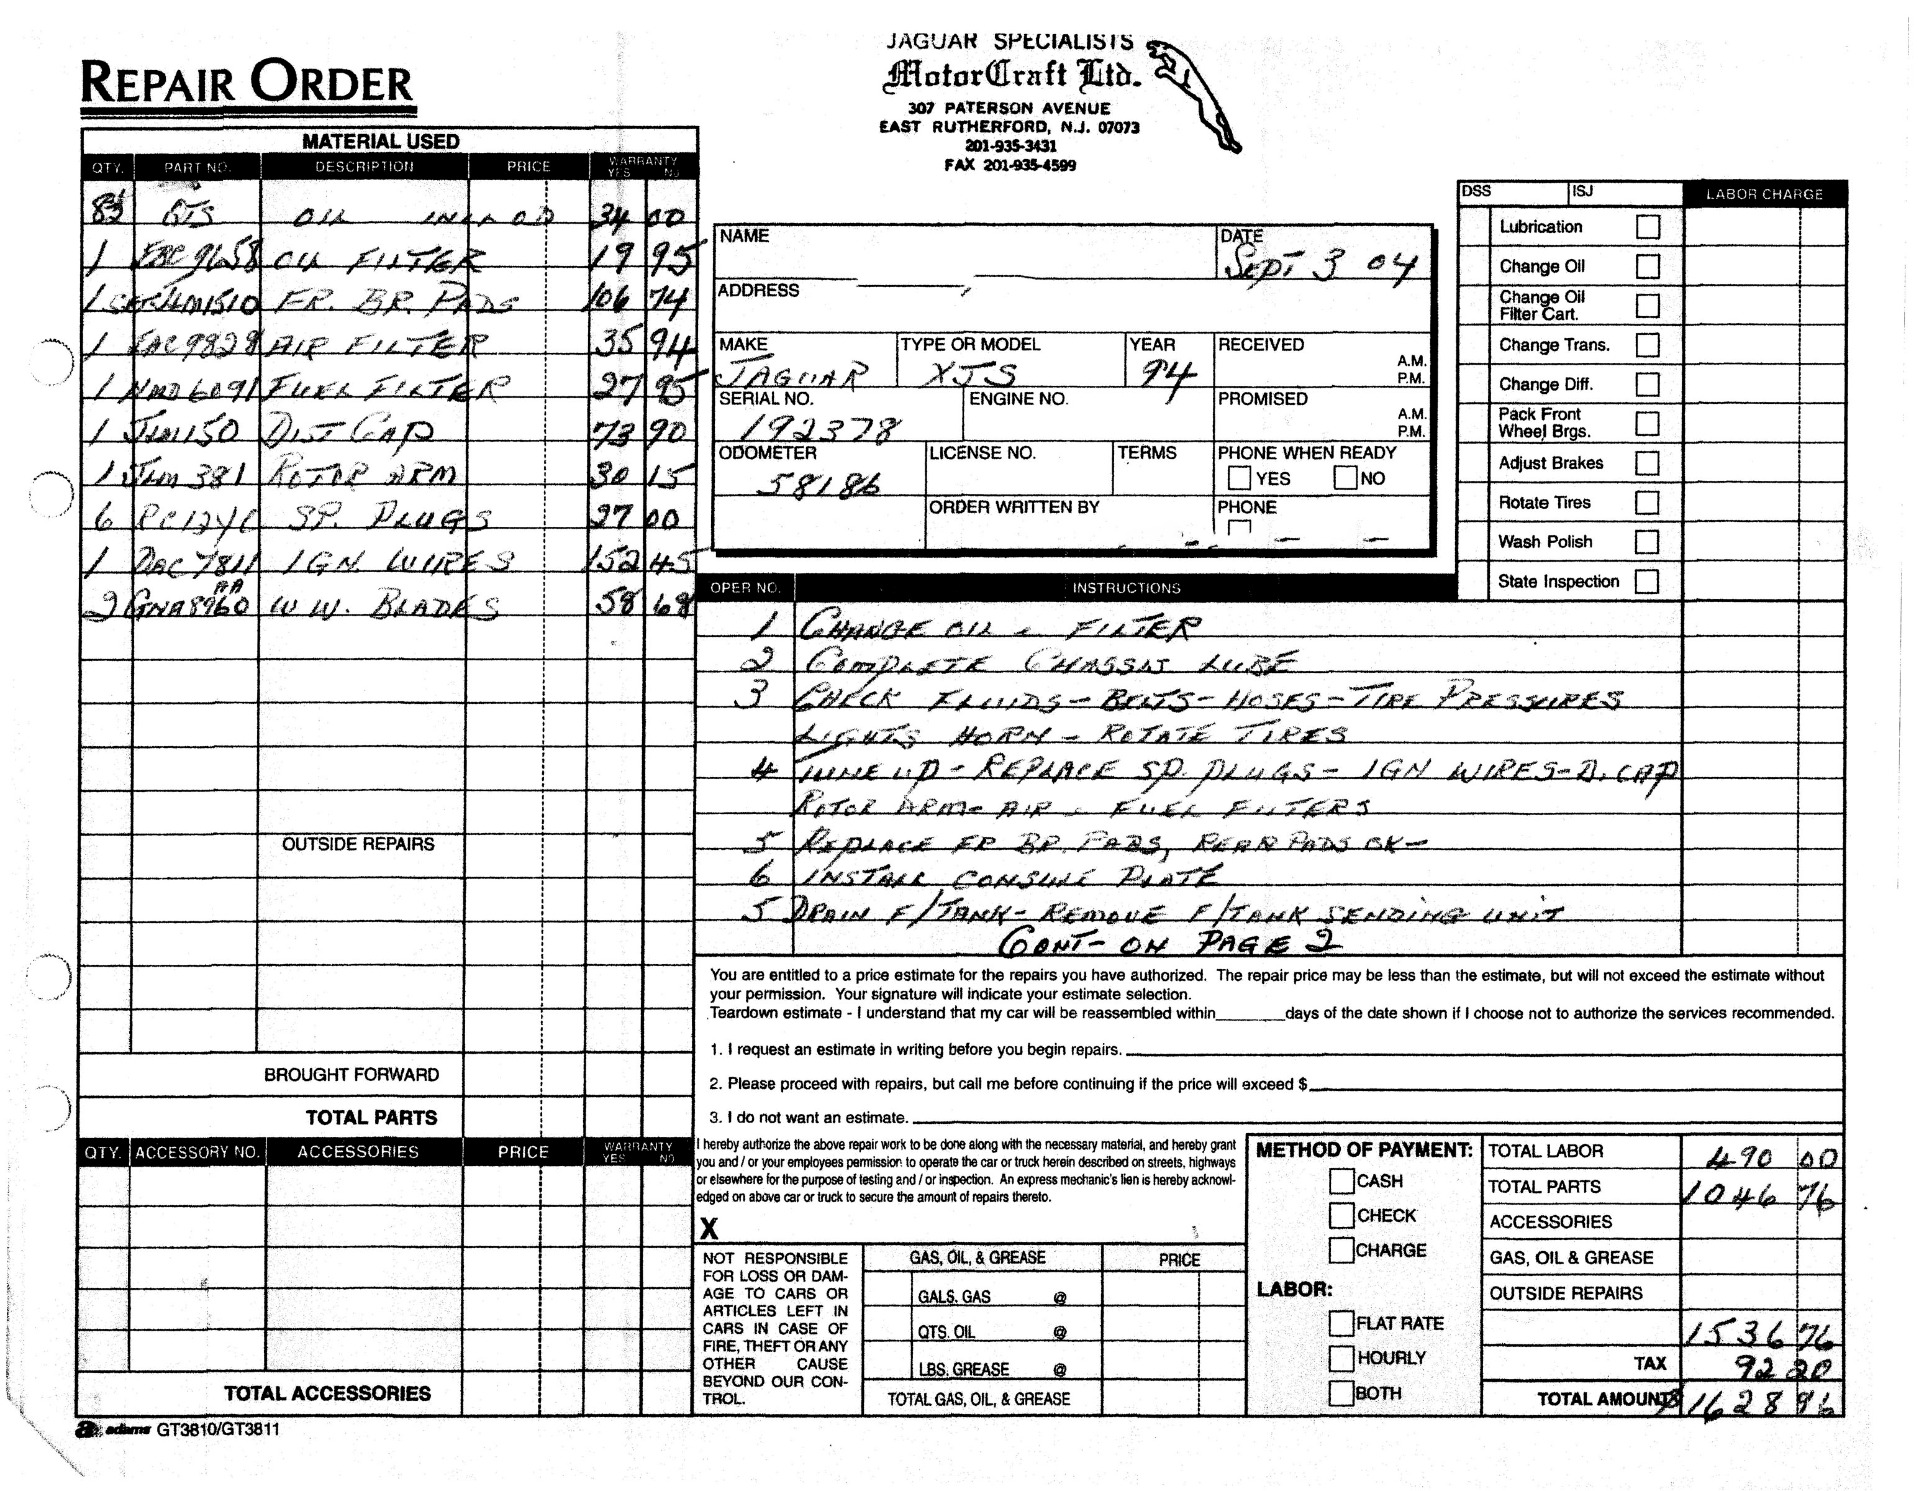 REPAIR ORDER
JAGUAR SPECIALISTS
MotorCraft Ltd.
307 PATERSON AVENUE
EAST RUTHERFORD, N.J. 07073
201-935-3431
FAX 201-935-4599
MATERIAL USED
QTY. PART NO. DESCRIPTION PRICE WARRANTY YES NO
8½ QTS OIL 34 00
1 EBC9658 OIL FILTER 19 95
1 SET JLM1510 FR. BR. PADS 106 74
1 EAC9828 AIR FILTER 35 94
1 NMD6091 FUEL FILTER 27 95
1 JLM150 DIST CAP 73 90
1 JLM381 ROTOR ARM 30 15
6 RC12YC SP. PLUGS 27 00
1 DAC7811 IGN. WIRES 152 45
2 GNA8960 AA W W. BLADES 58 68
OUTSIDE REPAIRS
BROUGHT FORWARD
TOTAL PARTS
QTY. ACCESSORY NO. ACCESSORIES PRICE WARRANTY YES NO
TOTAL ACCESSORIES
adams GT3810/GT3811
NAME
DATE
SEPT 3 04
ADDRESS
MAKE TYPE OR MODEL YEAR RECEIVED A.M. P.M.
JAGUAR XJS 94
SERIAL NO. ENGINE NO. PROMISED A.M. P.M.
192378
ODOMETER LICENSE NO. TERMS PHONE WHEN READY
58186 YES NO
ORDER WRITTEN BY PHONE
DSS ISJ LABOR CHARGE
Lubrication
Change Oil
Change Oil
Filter Cart.
Change Trans.
Change Diff.
Pack Front
Wheel Brgs.
Adjust Brakes
Rotate Tires
Wash Polish
State Inspection
OPER NO. INSTRUCTIONS
1 CHANGE OIL - FILTER
2 COMPLETE CHASSIS LUBE
3 CHECK FLUIDS-BELTS-HOSES-TIRE PRESSURES
LIGHTS HORN - ROTATE TIRES
4 TUNE UP - REPLACE SP. PLUGS- IGN WIRES-D. CAP
ROTOR ARM- AIR - FUEL FILTERS
5 REPLACE FR BR. PADS, REAR PADS OK-
6 INSTALL CONSULE PLATE
5 DRAIN F/TANK- REMOVE F/TANK SENDING UNIT
CONT- ON PAGE 2
You are entitled to a price estimate for the repairs you have authorized. The repair price may be less than the estimate, but will not exceed the estimate without
your permission. Your signature will indicate your estimate selection.
Teardown estimate - I understand that my car will be reassembled within_______days of the date shown if I choose not to authorize the services recommended.
1. I request an estimate in writing before you begin repairs.
2. Please proceed with repairs, but call me before continuing if the price will exceed $
3. I do not want an estimate.
I hereby authorize the above repair work to be done along with the necessary material, and hereby grant
you and / or your employees permission to operate the car or truck herein described on streets, highways
or elsewhere for the purpose of testing and / or inspection. An express mechanic's lien is hereby acknowl-
edged on above car or truck to secure the amount of repairs thereto.
X
NOT RESPONSIBLE
FOR LOSS OR DAM-
AGE TO CARS OR
ARTICLES LEFT IN
CARS IN CASE OF
FIRE, THEFT OR ANY
OTHER CAUSE
BEYOND OUR CON-
TROL.
GAS, OIL, & GREASE PRICE
GALS. GAS @
QTS. OIL @
LBS. GREASE @
TOTAL GAS, OIL, & GREASE
METHOD OF PAYMENT:
CASH
CHECK
CHARGE
LABOR:
FLAT RATE
HOURLY
BOTH
TOTAL LABOR 490 00
TOTAL PARTS 1046 76
ACCESSORIES
GAS, OIL & GREASE
OUTSIDE REPAIRS
1536 76
TAX 92 20
TOTAL AMOUNT $1628 96